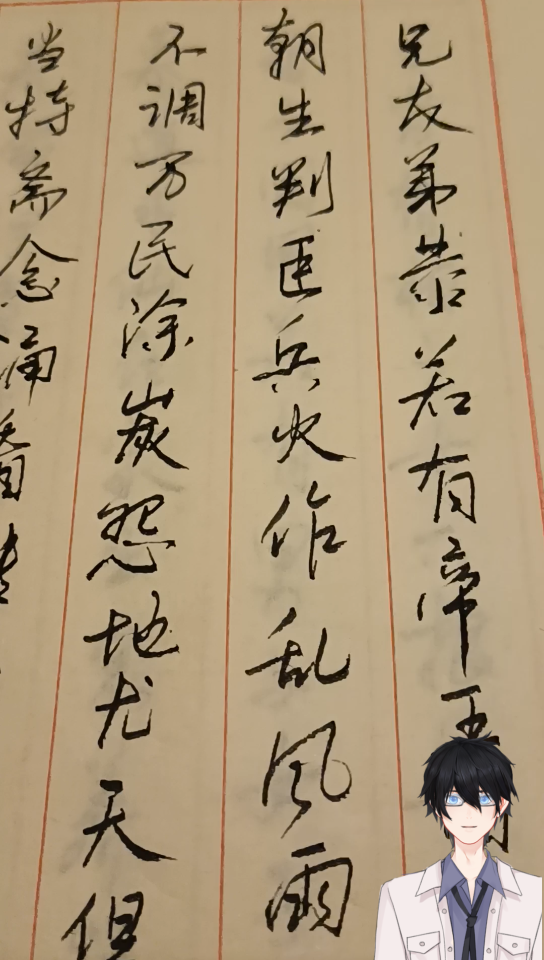 兄友弟恭若有帝王
朝生判臣兵火作乱风雨
不调万民涂炭怨地尤天但
当持斋念诵